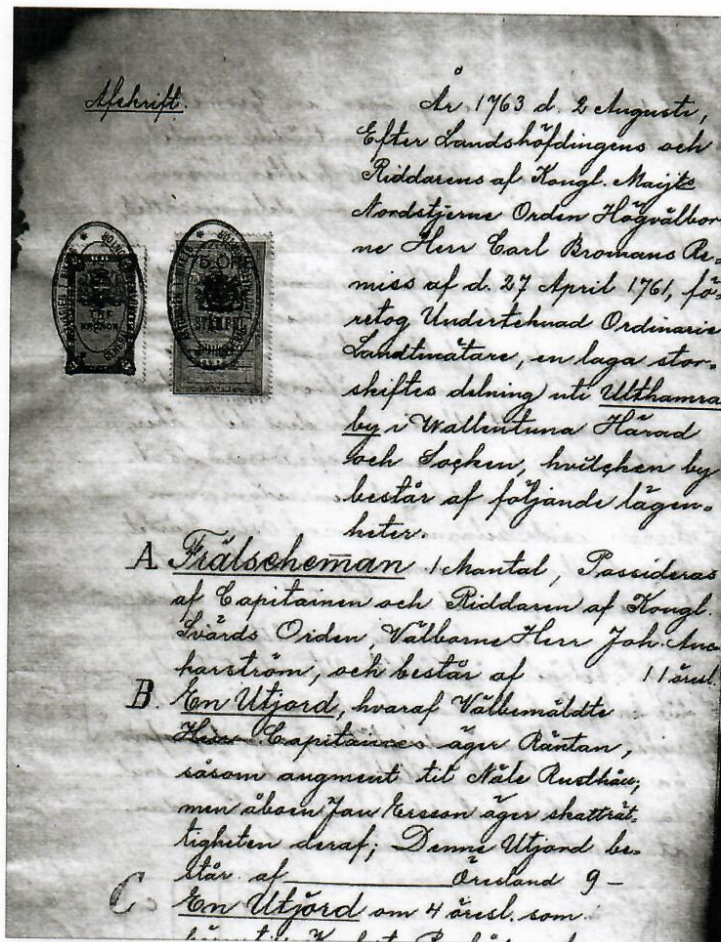 Afskrift.
År 1763 d. 2 Augusti,
Efter Landshöfdingens och
Riddarens af Kongl. Maijts
Nordstjerne Orden Högvälbor-
ne Herr Carl Bromans Re-
miss af d. 27 April 1761, fö-
retog Undertecknad Ordinarie
Landtmätare, en laga stor-
skiftes delning uti Ulthamra
by i Wallentuna Härad
och Socken, hvilchen by
består af följande lägen-
heter.
TRE
KRONOR
50
STÄMPEL
A Frälseheman 1 Mantal, Possideras
af Capitainen och Riddaren af Kongl.
Svärds Orden, Välborne Herr Joh. Anc
karström, och består af 11 öresl.
B. En Utjord, hvaraf Välbemäldte
Herr Capitaines äger Räntan,
såsom augment til Näle
men åboen Jan Ersson äger skatträt-
tigheten deraf; Denne Utjord be-
står af Öresland 9-
C En Utjord om 4 öresl. som